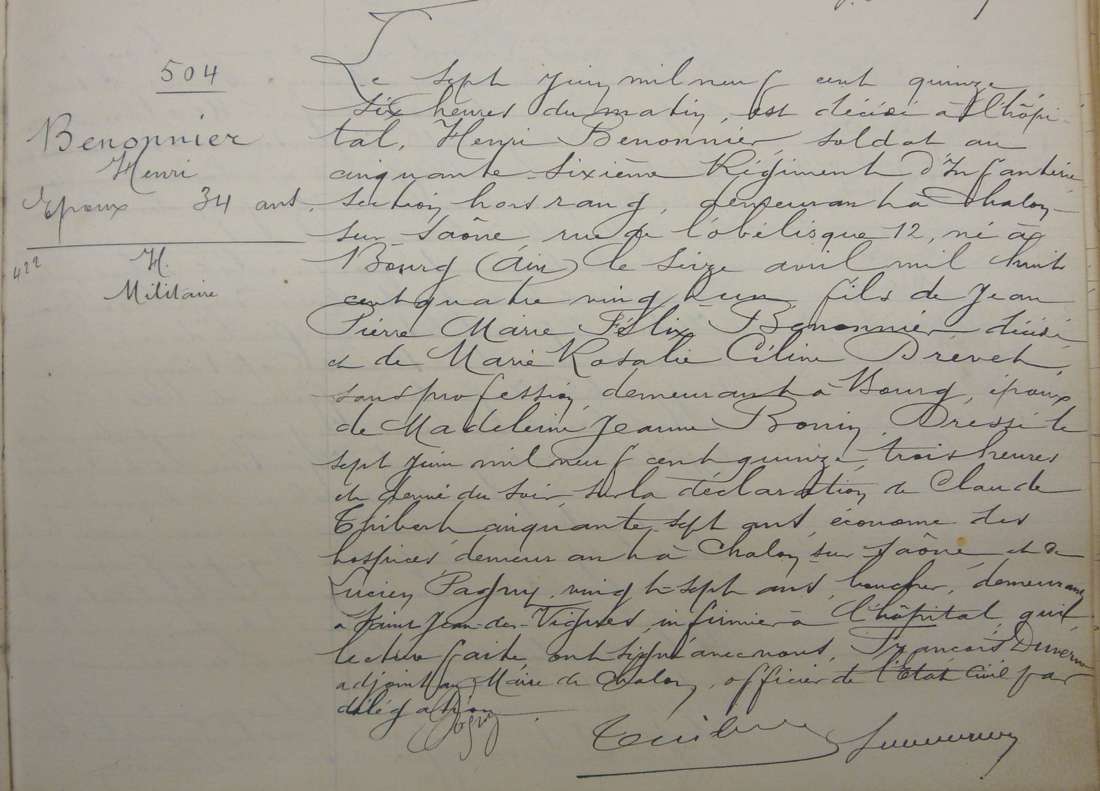 504
Benonnier
Henri
Epoux 34 ans.
422
H.
Militaire
Le sept juin mil neuf cent quinze
six heures du matin, est décédé à l'hôpi-
tal, Henri Benonnier, soldat au
cinquante-sixième Régiment d'Infanterie
section hors rang, demeurant à Chalon-
sur-Saône, rue de l'obélisque 12, né à
Bourg (Ain) le seize avril mil huit
cent quatre vingt un, fils de Jean
Pierre Marie Félix Benonnier décédé
et de Marie Rosalie Céline Brevet,
sans profession, demeurant à Bourg, époux
de Madeleine Jeanne Bonin. Dressé le
sept juin mil neuf cent quinze, trois heures
et demie du soir sur la déclaration de Claude
Thibert cinquante-sept ans, économe des
hospices, demeurant à Chalon-sur-Saône et de
Lucien Pagny, vingt-sept ans, boucher, demeurant
à Saint-Jean-des-Vignes, infirmier à l'hôpital, qui
lecture faite ont signé avec nous, François
adjoint au Maire de Chalon, officier de l'Etat Civil par
délégation.
Pagny